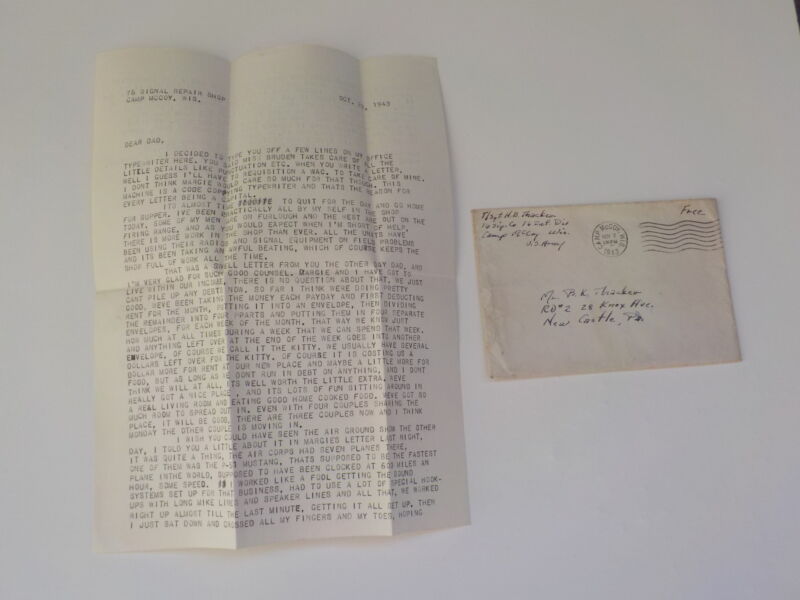 76 SIGNAL REPAIR SHOP
CAMP MCCOY, WIS.
OCT. 1943
DEAR DAD,
I DECIDED TO TYPE YOU OFF A FEW LINES ON MY OFFICE
TYPEWRITER HERE. YOU SAID MISS BRUDEN TAKES CARE OF ALL THE
LITTLE DETAILS LIKE PUNCTUATION ETC. WHEN YOU WRITE A LETTER.
WELL I GUESS I'LL HAVE TO REQUISITION A WAC. TO TAKE CARE OF MINE.
I DONT THINK MARGIE WOULD CARE SO MUCH FOR THAT THOUGH. THIS
MACHINE IS A CODE COPYING TYPEWRITER AND THATS THE REASON FOR
EVERY LETTER BEING A CAPITAL.
ITS ALMOST TIME TO QUIT FOR THE DAY AND GO HOME
FOR SUPPER. IVE BEEN PRACTICALLY ALL BY MY SELF IN THE SHOP
TODAY, SOME OF MY MEN ON FURLOUGH AND THE REST ARE OUT ON THE
FIRING RANGE, AND AS YOU WOULD EXPECT WHEN I'M SHORT OF HELP,
THERE IS MORE WORK IN THE SHOP THAN EVER. ALL THE UNITS HAVE
BEEN USING THEIR RADIOS AND SIGNAL EQUIPMENT ON FIELD PROBLEMS
AND ITS BEEN TAKING AN AWFUL BEATING, WHICH OF COURSE KEEPS THE
SHOP FULL OF WORK ALL THE TIME.
THAT WAS A SWELL LETTER FROM YOU THE OTHER DAY DAD, AND
I'M VERY GLAD FOR SUCH GOOD COUNSEL. MARGIE AND I HAVE GOT TO
LIVE WITHIN OUR INCOME, THERE IS NO QUESTION ABOUT THAT, WE JUST
CANT PILE UP ANY DEBT NOW. SO FAR I THINK WERE DOING PRETTY
GOOD. WEVE BEEN TAKING THE MONEY EACH PAYDAY AND FIRST DEDUCTING
RENT FOR THE MONTH, PUTTING IT INTO AN ENVELOPE, THEN DIVIDING
THE REMAINDER INTO FOUR PARTS AND PUTTING THEM IN FOUR SEPARATE
ENVELOPES, FOR EACH WEEK OF THE MONTH. THAT WAY WE KNOW JUST
HOW MUCH AT ALL TIMES DURING A WEEK THAT WE CAN SPEND THAT WEEK.
AND ANYTHING LEFT OVER AT THE END OF THE WEEK GOES INTO ANOTHER
ENVELOPE, OF COURSE WE CALL IT THE KITTY. WE USUALLY HAVE SEVERAL
DOLLARS LEFT OVER FOR THE KITTY. OF COURSE IT IS COSTING US A
DOLLAR MORE FOR RENT AT OUR NEW PLACE AND MAYBE A LITTLE MORE FOR
FOOD, BUT AS LONG AS WE DONT RUN IN DEBT ON ANYTHING, AND I DONT
THINK WE WILL AT ALL, ITS WELL WORTH THE LITTLE EXTRA. WEVE
REALLY GOT A NICE PLACE, AND ITS LOTS OF FUN SITTING AROUND IN
A REAL LIVING ROOM AND EATING GOOD HOME COOKED FOOD. WEVE GOT SO
MUCH ROOM TO SPREAD OUT IN. EVEN WITH FOUR COUPLES SHARING THE
PLACE, IT WILL BE GOOD. THERE ARE THREE COUPLES NOW AND I THINK
MONDAY THE OTHER COUPLE IS MOVING IN.
I WISH YOU COULD HAVE SEEN THE AIR GROUND SHOW THE OTHER
DAY, I TOLD YOU A LITTLE ABOUT IT IN MARGIES LETTER LAST NIGHT,
IT WAS QUITE A THING, THE AIR CORPS HAD SEVEN PLANES THERE,
ONE OF THEM WAS THE P-51 MUSTANG. THATS SUPPOSED TO BE THE FASTEST
PLANE INTHE WORLD, SUPPOSED TO HAVE BEEN CLOCKED AT 600 MILES AN
HOUR, SOME SPEED. I WORKED LIKE A FOOL GETTING THE SOUND
SYSTEMS SET UP FOR THAT BUSINESS, HAD TO USE A LOT OF SPECIAL HOOK-
UPS WITH LONG MIKE LINES AND SPEAKER LINES AND ALL THAT, WE WORKED
RIGHT UP ALMOST TILL THE LAST MINUTE, GETTING IT ALL SET UP, THEN
I JUST SAT DOWN AND CROSSED ALL MY FINGERS AND MY TOES, HOPING
T/Sgt H.B. Thacker
76 Sig Co 76 Inf. Div
Camp McCoy Wis.
U.S. Army
Free
CAMP MCCOY WIS.
NOV
1943
Mr. B. K. Thacker
RD#2 28 Knox Ave.
New Castle, Pa.